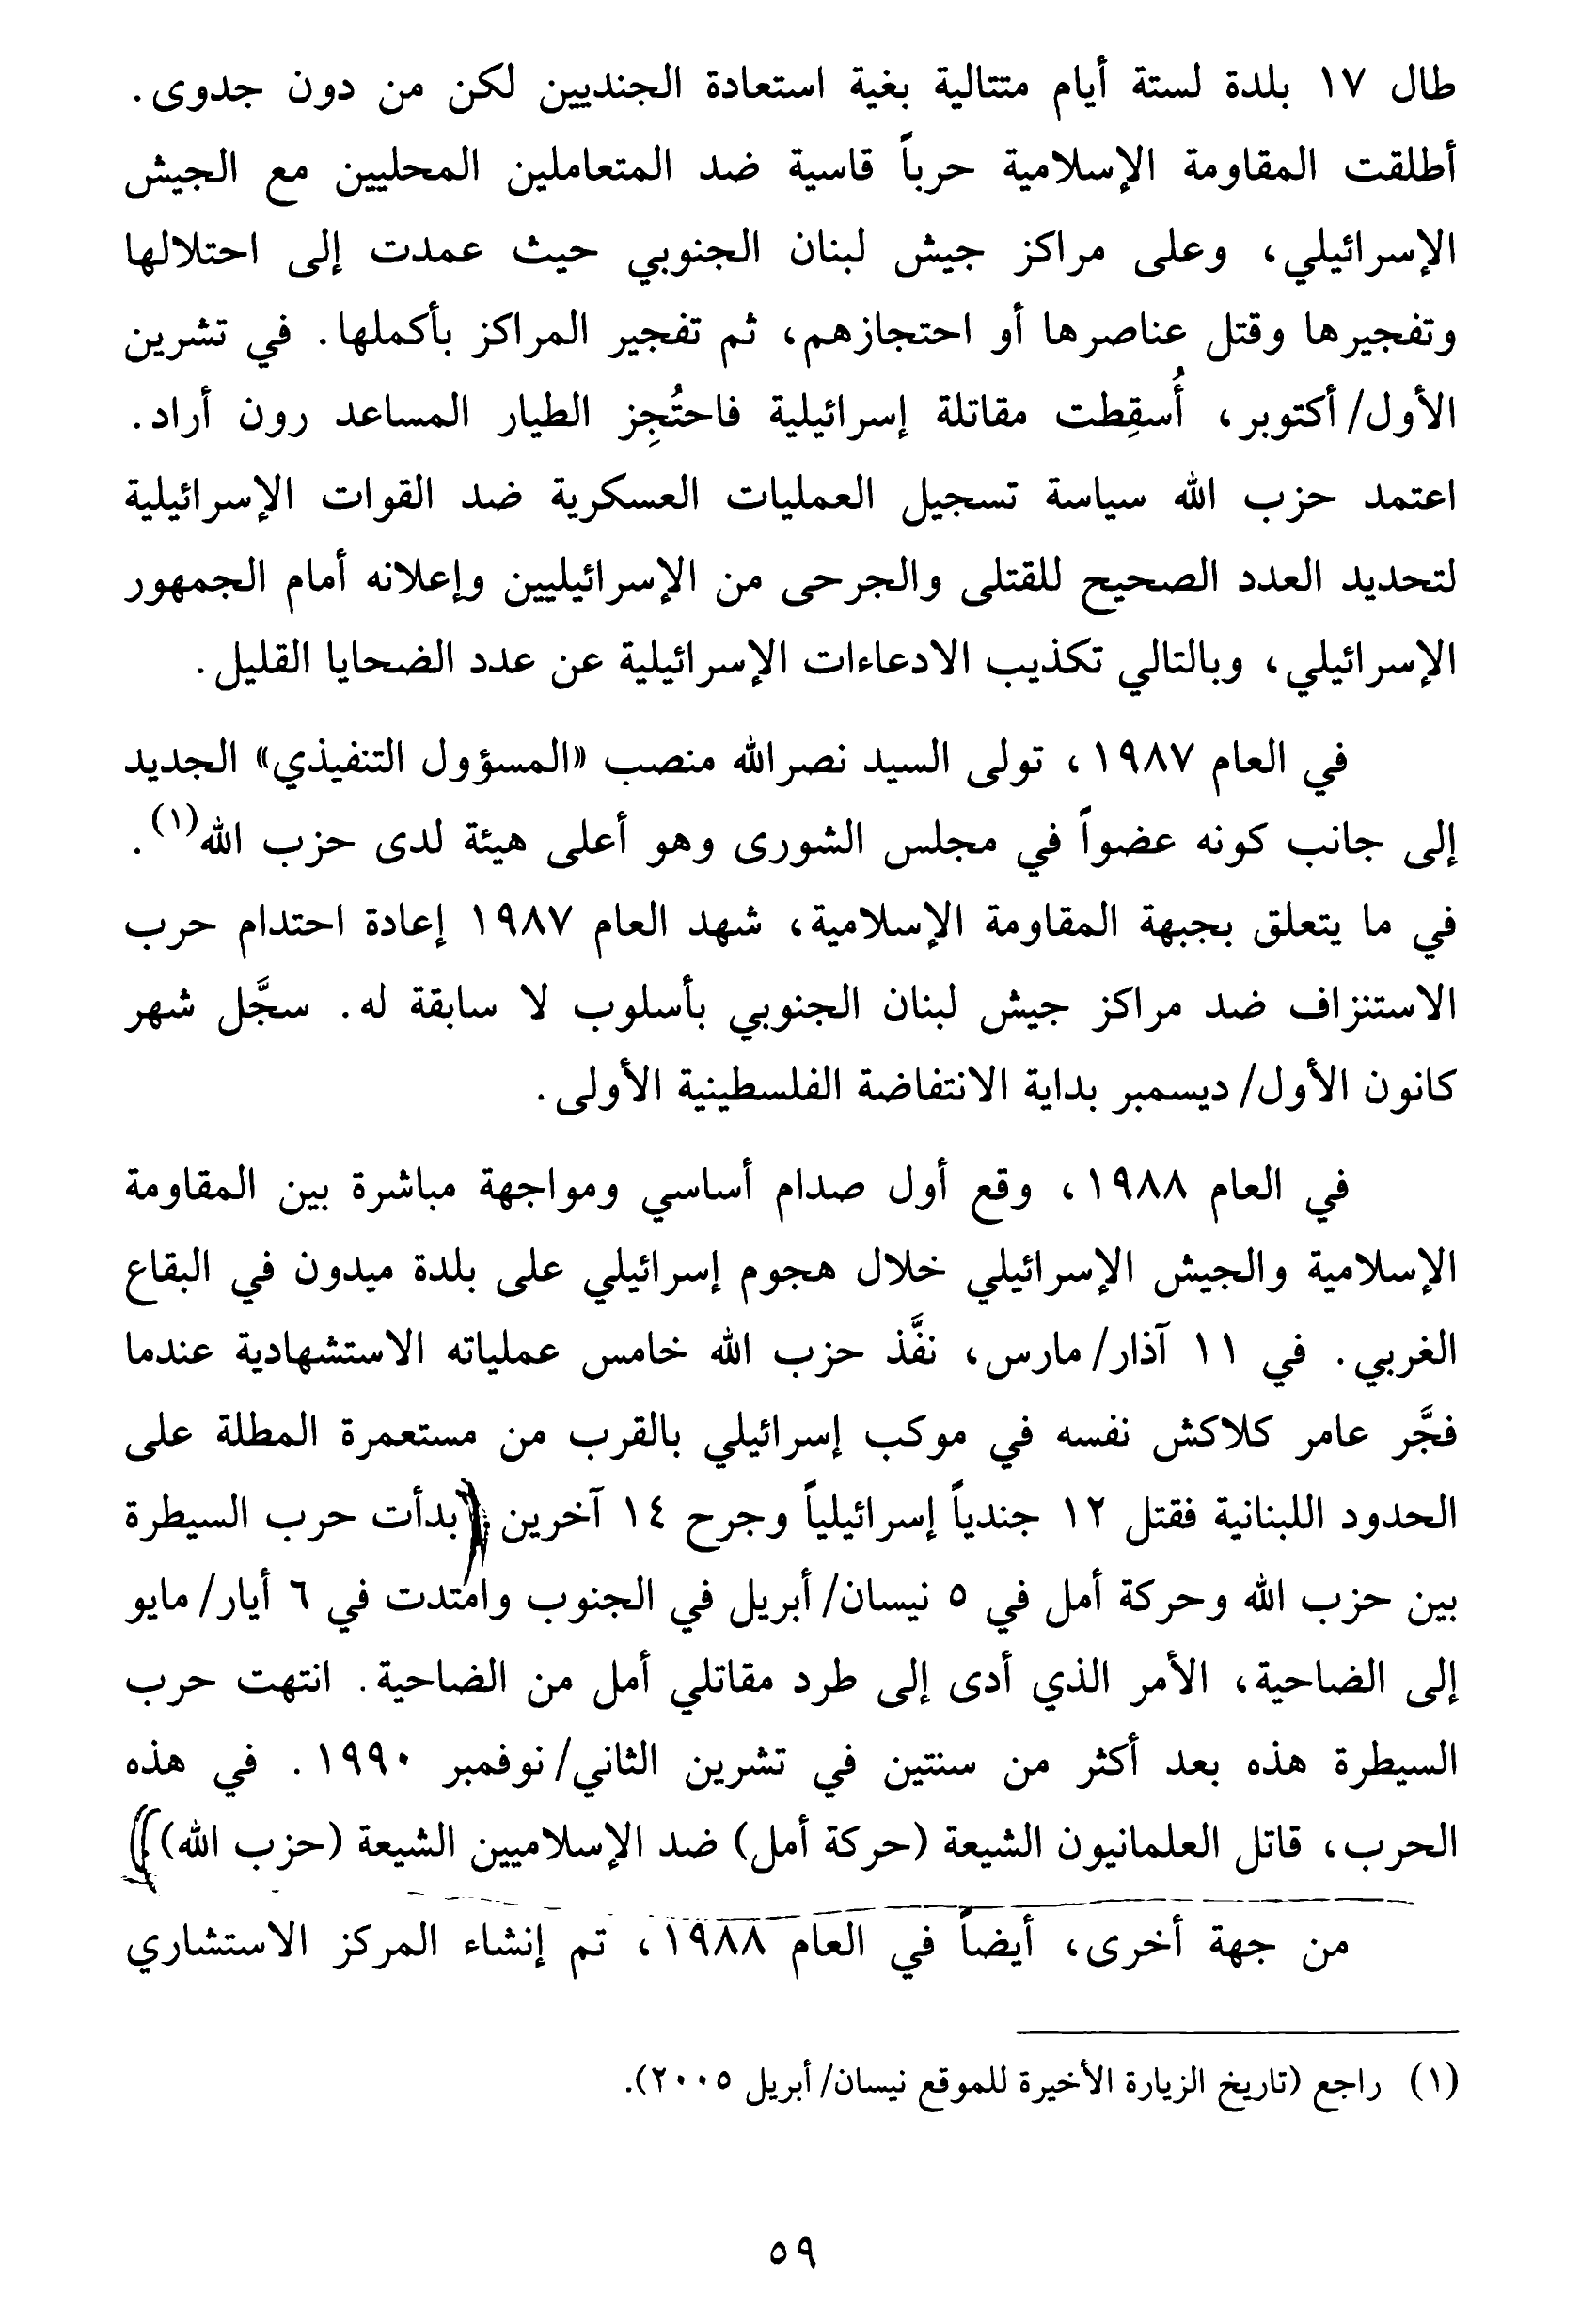 طال ١٧ بلدة لستة أيام متتالية بغية استعادة الجنديين لكن من دون جدوى.
أطلقت المقاومة الإسلامية حرباً قاسية ضد المتعاملين المحليين مع الجيش
الإسرائيلي، وعلى مراكز جيش لبنان الجنوبي حيث عمدت إلى احتلالها
وتفجيرها وقتل عناصرها أو احتجازهم، ثم تفجير المراكز بأكملها. في تشرين
الأول/أكتوبر، أُسقِطت مقاتلة إسرائيلية فاحتُجِز الطيار المساعد رون أراد.
اعتمد حزب الله سياسة تسجيل العمليات العسكرية ضد القوات الإسرائيلية
لتحديد العدد الصحيح للقتلى والجرحى من الإسرائيليين وإعلانه أمام الجمهور
الإسرائيلي، وبالتالي تكذيب الادعاءات الإسرائيلية عن عدد الضحايا القليل.
في العام ١٩٨٧، تولى السيد نصرالله منصب «المسؤول التنفيذي» الجديد
إلى جانب كونه عضواً في مجلس الشورى وهو أعلى هيئة لدى حزب الله(١).
في ما يتعلق بجبهة المقاومة الإسلامية، شهد العام ١٩٨٧ إعادة احتدام حرب
الاستنزاف ضد مراكز جيش لبنان الجنوبي بأسلوب لا سابقة له. سجَّل شهر
كانون الأول/ديسمبر بداية الانتفاضة الفلسطينية الأولى.
في العام ١٩٨٨، وقع أول صدام أساسي ومواجهة مباشرة بين المقاومة
الإسلامية والجيش الإسرائيلي خلال هجوم إسرائيلي على بلدة ميدون في البقاع
الغربي. في ١١ آذار/مارس، نفَّذ حزب الله خامس عملياته الاستشهادية عندما
فجَّر عامر كلاكش نفسه في موكب إسرائيلي بالقرب من مستعمرة المطلة على
الحدود اللبنانية فقتل ١٢ جندياً إسرائيلياً وجرح ١٤ آخرين. بدأت حرب السيطرة
بين حزب الله وحركة أمل في ٥ نيسان/أبريل في الجنوب وامتدت في ٦ أيار/مايو
إلى الضاحية، الأمر الذي أدى إلى طرد مقاتلي أمل من الضاحية. انتهت حرب
السيطرة هذه بعد أكثر من سنتين في تشرين الثاني/نوفمبر ١٩٩٠. في هذه
الحرب، قاتل العلمانيون الشيعة (حركة أمل) ضد الإسلاميين الشيعة (حزب الله).
من جهة أخرى، أيضاً في العام ١٩٨٨، تم إنشاء المركز الاستشاري
(١) راجع (تاريخ الزيارة الأخيرة للموقع نيسان/أبريل ٢٠٠٥).
٥٩